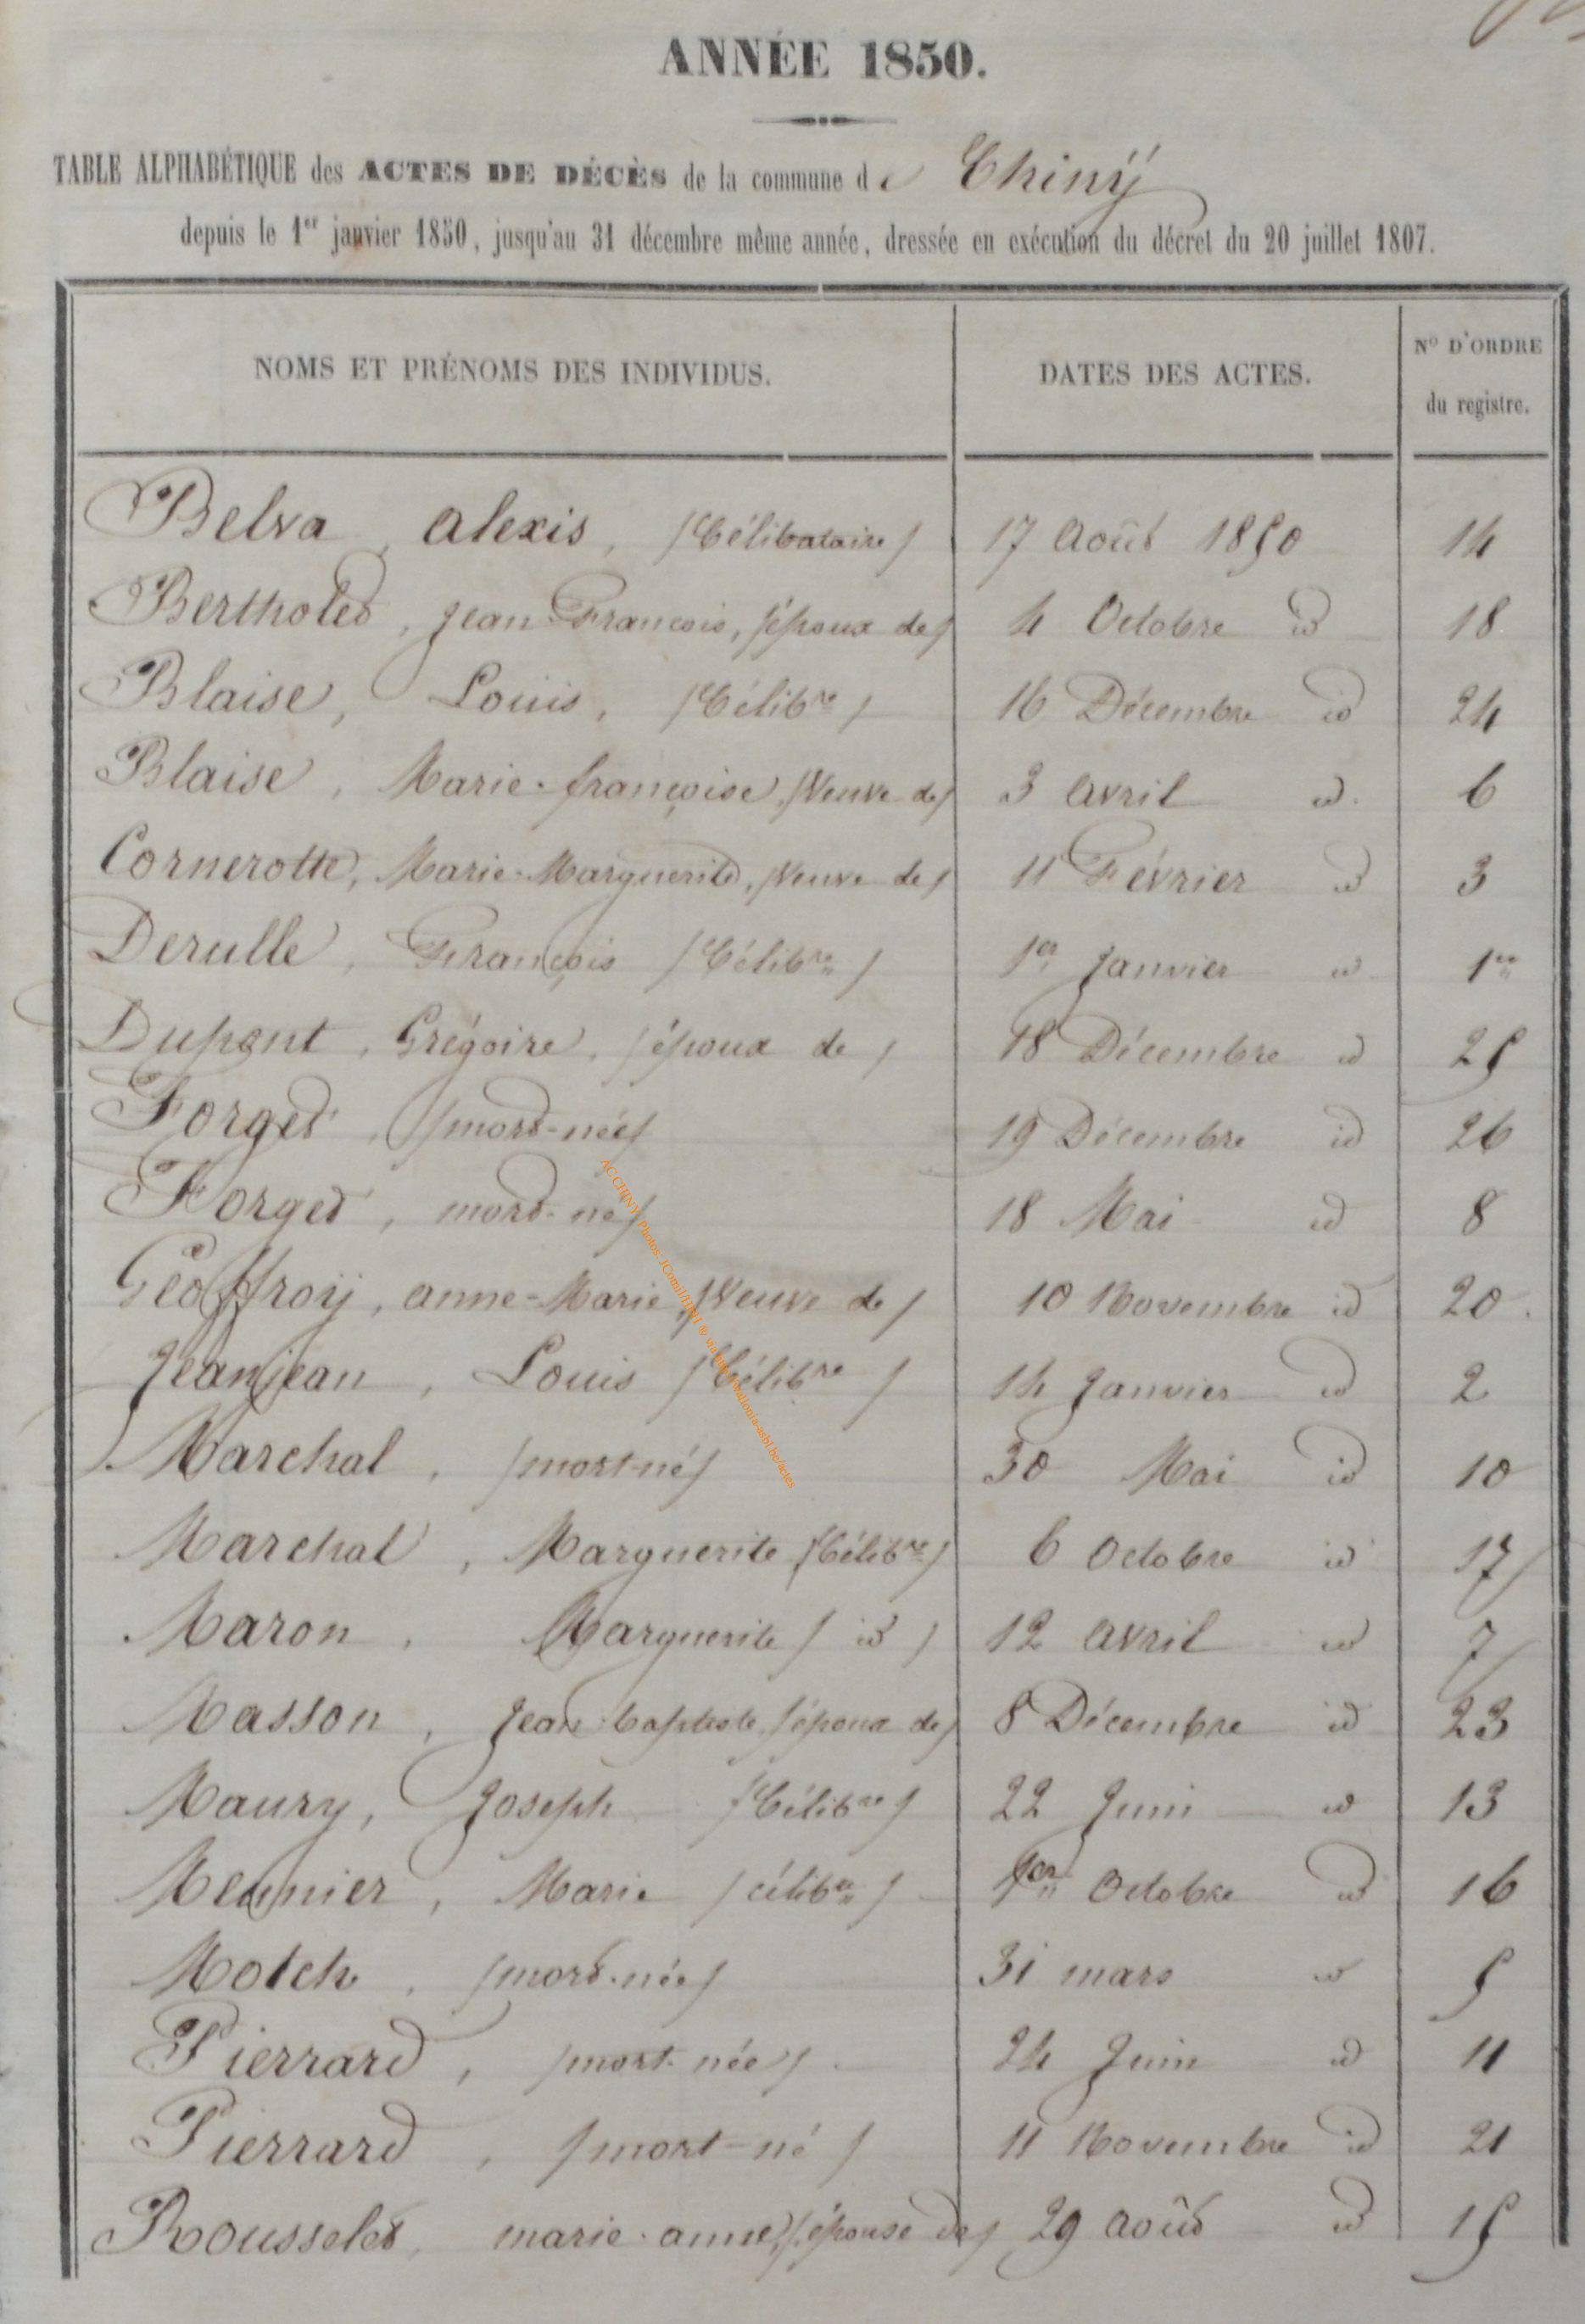 ANNÉE 1850.
TABLE ALPHABÉTIQUE des ACTES DE DÉCÈS de la commune de Chinÿ
depuis le 1er janvier 1850, jusqu'au 31 décembre même année, dressée en exécution du décret du 20 juillet 1807.
NOMS ET PRÉNOMS DES INDIVIDUS. DATES DES ACTES. No D'ORDRE du registre.
Belva, alexis, /Célibataire/ 17 Août 1850 14
Bertholet, jean François, /époux de/ 4 Octobre id 18
Blaise, Louis, /Célibre/ 16 Décembre id 24
Blaise, Marie-françoise, /Veuve de/ 3 avril id. 6
Cornerotte, Marie-Marguerite, /Veuve de/ 11 Février id 3
Derulle, François /Célibre/ 1er janvier id 1er
Dupont, Grégoire, /époux de/ 18 Décembre id 25
Forget, /mort-née/ 19 Décembre id 26
Forget, mort-né/ 18 Mai id 8
Géoffroij, anne-Marie, /Veuve de/ 10 Novembre id 20.
Jeanjean, Louis /Célibre/ 14 Janvier id 2
Marchal, /mort-né/ 30 Mai id 10
Marchal, Marguerite /Célibre/ 6 Octobre id 17
Maron, Marguerite /id/ 12 avril id 7
Masson, Jean-baptiste, /époux de/ 8 Décembre id 23
Maury, Joseph /Célibre/ 22 Juin id 13
Meunier, Marie /célibre/ 1er Octobre id 16
Motch, /mort-née/ 31 mars id 5
Pierrard, /mort-née/ 24 Juin id 11
Pierrard, /mort-né/ 11 Novembre id 21
Rousselet, marie-anne, /épouse de/ 29 août id 15